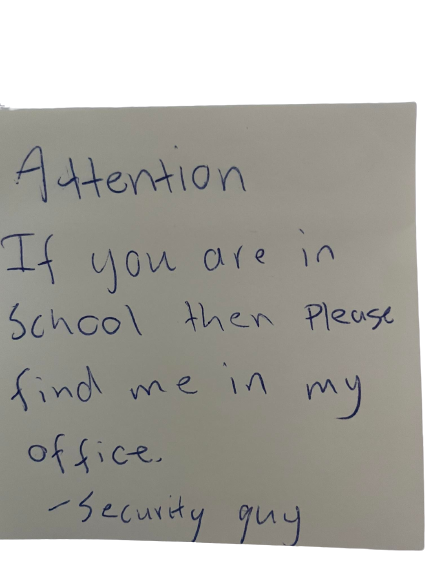 Attention
If you are in
School then Please
find me in my
office.
-Security guy